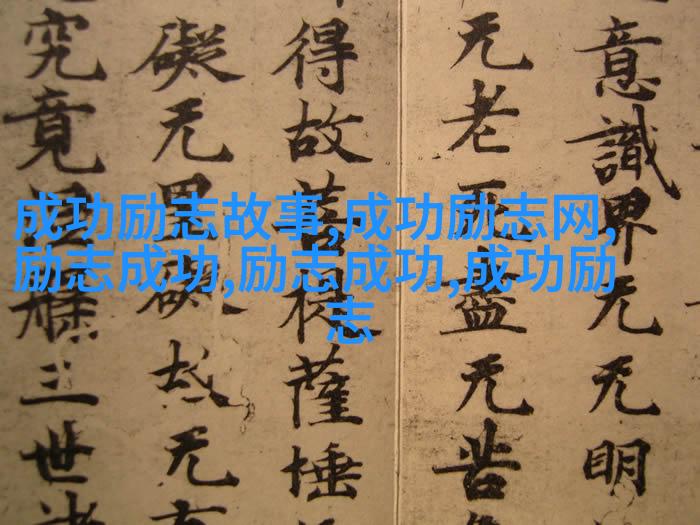 意識界无无明
无老死盡无苦
得故菩提薩埵
礙无罣礙故无有
究竟涅槃三世諸
成功励志故事,成功励志网,
励志成功,励志成功,成功励
志